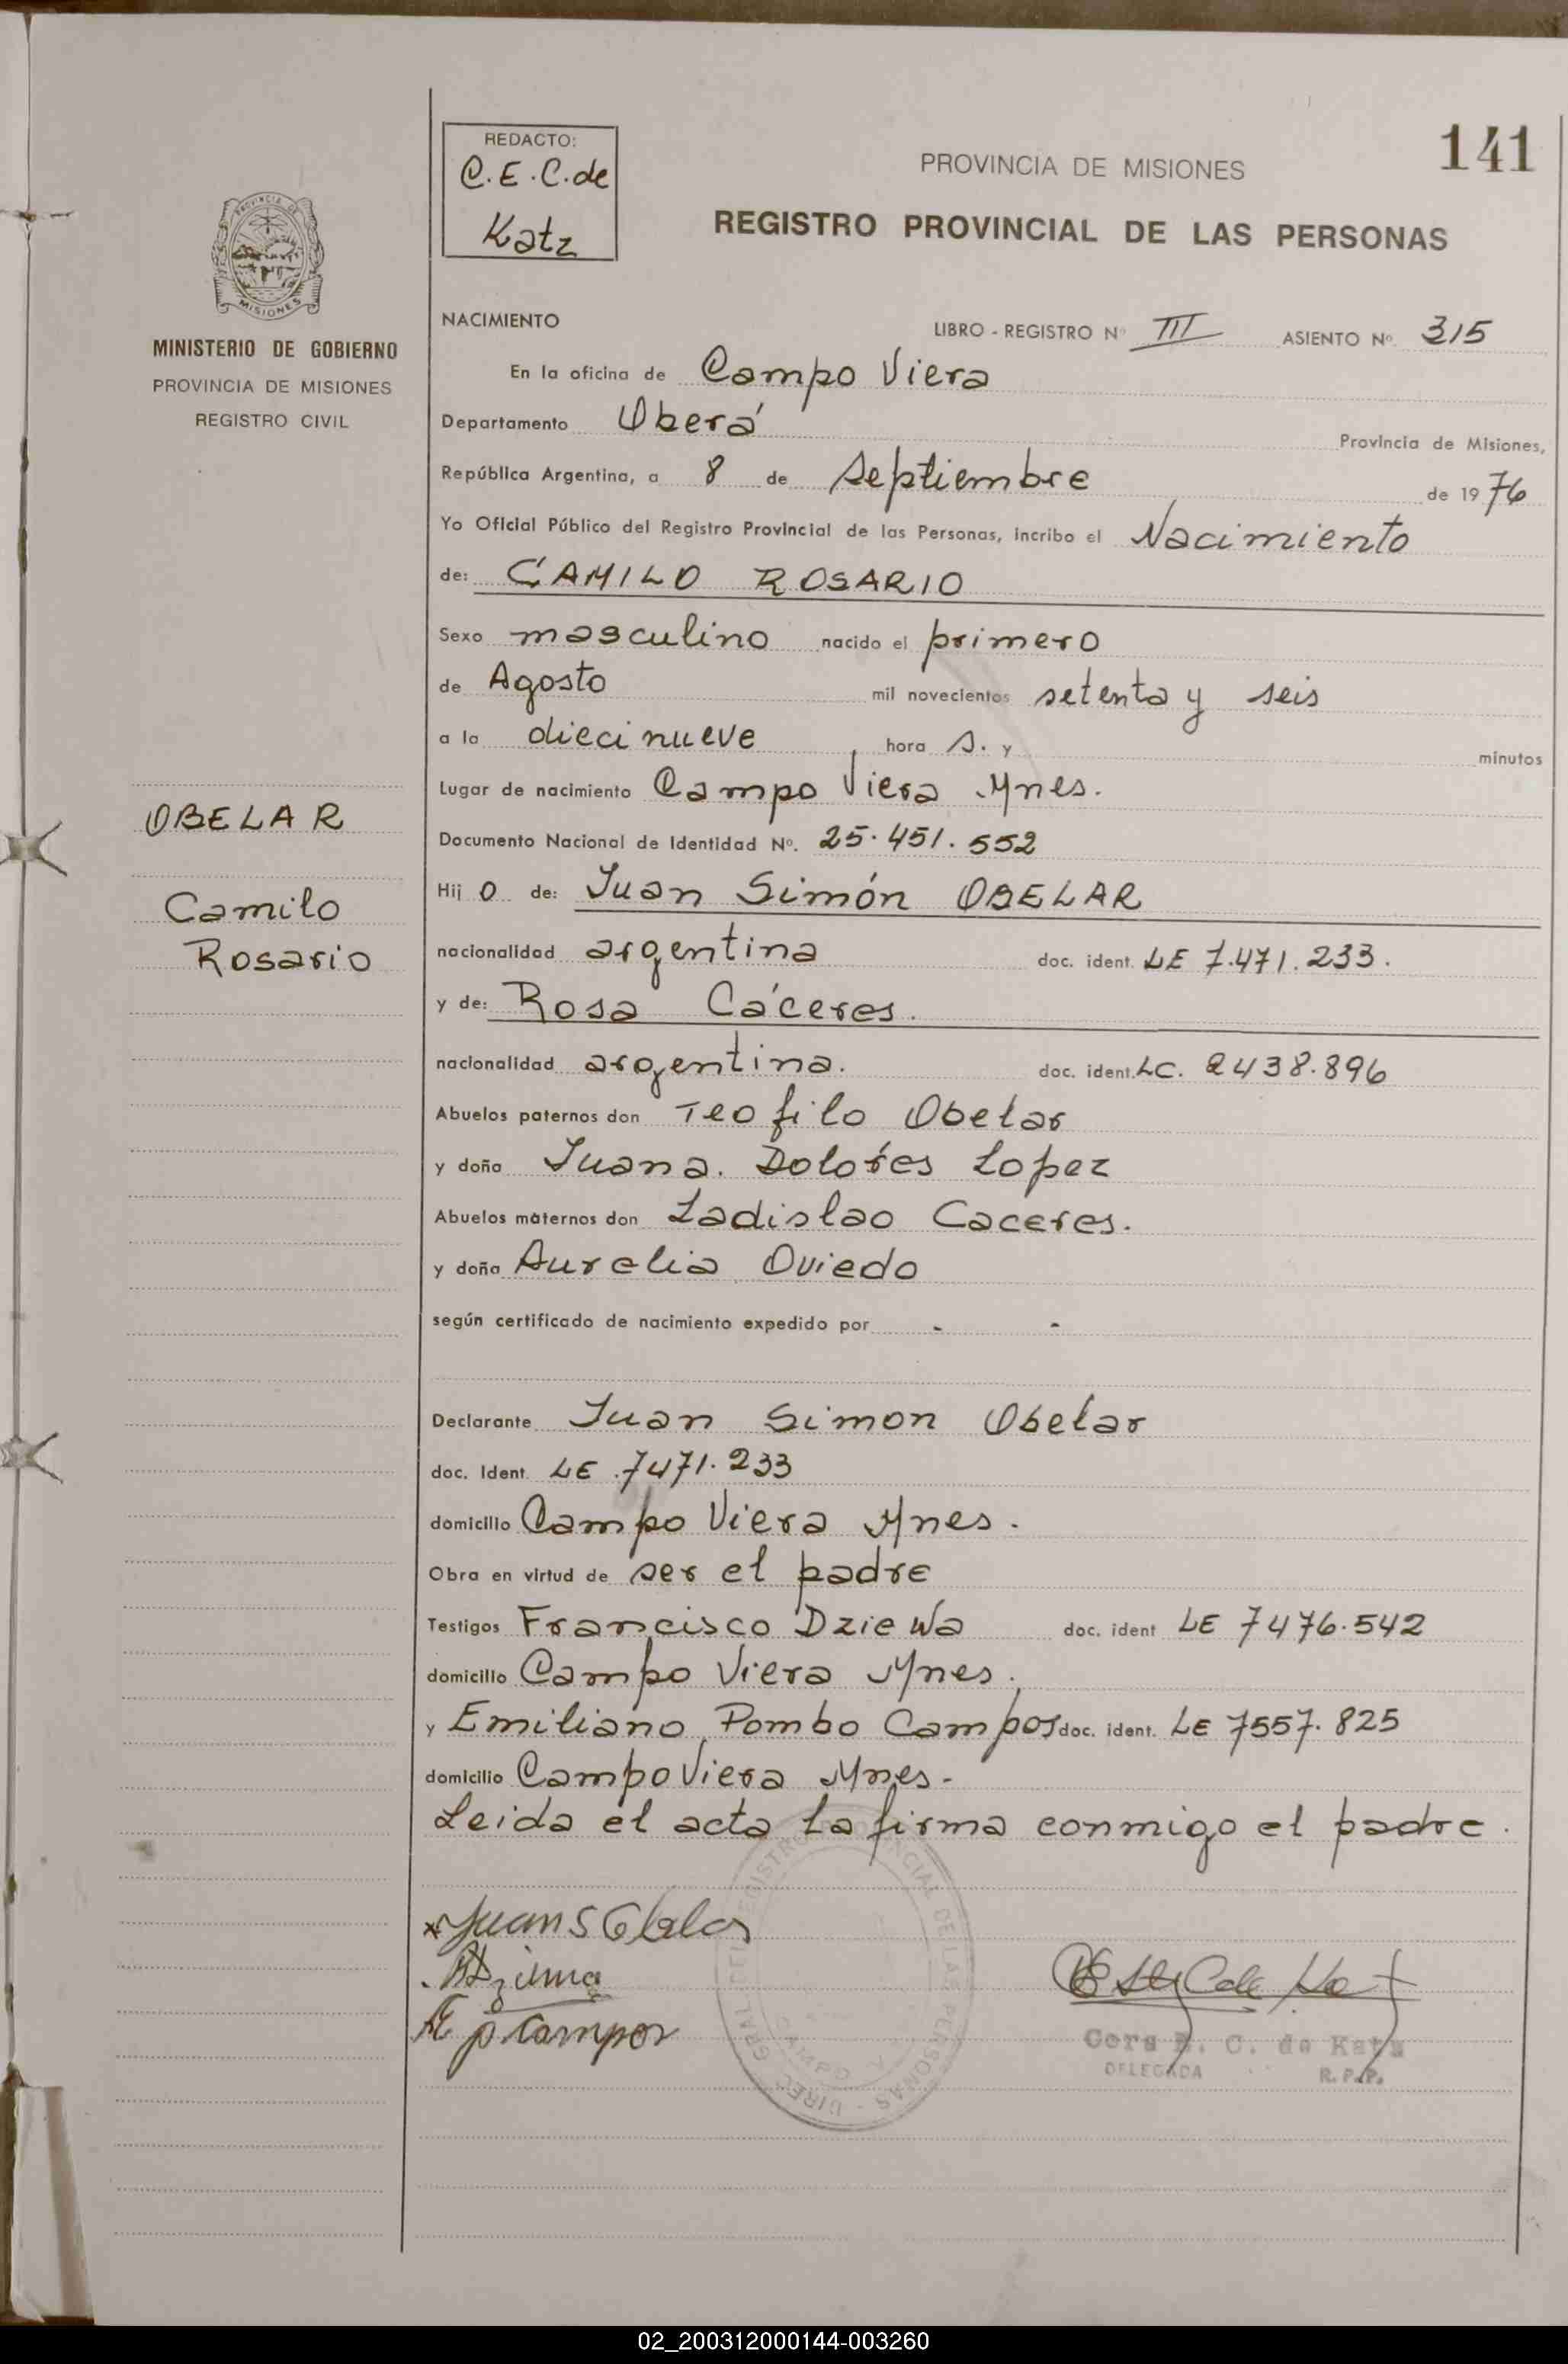 141
REDACTO:
C.E.C. de
Katz
PROVINCIA DE MISIONES
REGISTRO PROVINCIAL DE LAS PERSONAS
PROVINCIA DE
MISIONES
MINISTERIO DE GOBIERNO
PROVINCIA DE MISIONES
REGISTRO CIVIL
OBELAR
Camilo
Rosario
NACIMIENTO LIBRO - REGISTRO Nº III ASIENTO Nº. 315
En la oficina de Campo Viera
Departamento Oberá Provincia de Misiones,
República Argentina, a 8 de Septiembre de 1976
Yo Oficial Público del Registro Provincial de las Personas, incribo el Nacimiento
de: CAMILO ROSARIO
Sexo masculino nacido el primero
de Agosto mil novecientos setenta y seis
a la diecinueve hora s. y minutos
Lugar de nacimiento Campo Viera Mnes.
Documento Nacional de Identidad Nº. 25.451.552
Hij o de: Juan Simón OBELAR
nacionalidad argentina doc. ident. LE 7.471.233.
y de: Rosa Cáceres.
nacionalidad argentina. doc. ident. LC. 2438.896
Abuelos paternos don Teofilo Obelar
y doña Juana. Dolores Lopez
Abuelos maternos don Ladislao Caceres.
y doña Aurelia Oviedo
según certificado de nacimiento expedido por - -
Declarante Juan Simon Obelar
doc. Ident. LE 7471.233
domicilio Campo Viera Mnes.
Obra en virtud de ser el padre
Testigos Francisco Dziewa doc. ident LE 7476.542
domicilio Campo Viera Mnes.
y Emiliano Pombo Campos doc. ident. LE 7557.825
domicilio Campo Viera Mnes-
Leida el acta la firma conmigo el padre.
Juan S Obelar
E p Campos
C. de Katz
DELEGADA R.P.P.
02_200312000144-003260